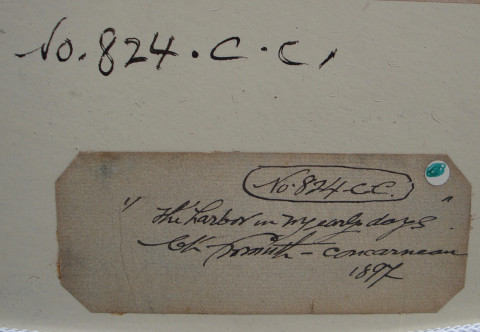 No. 824 . C . C,
No. 824 C.C.
"The harbor in my early days."
Ch Fromuth – concarneau
1897